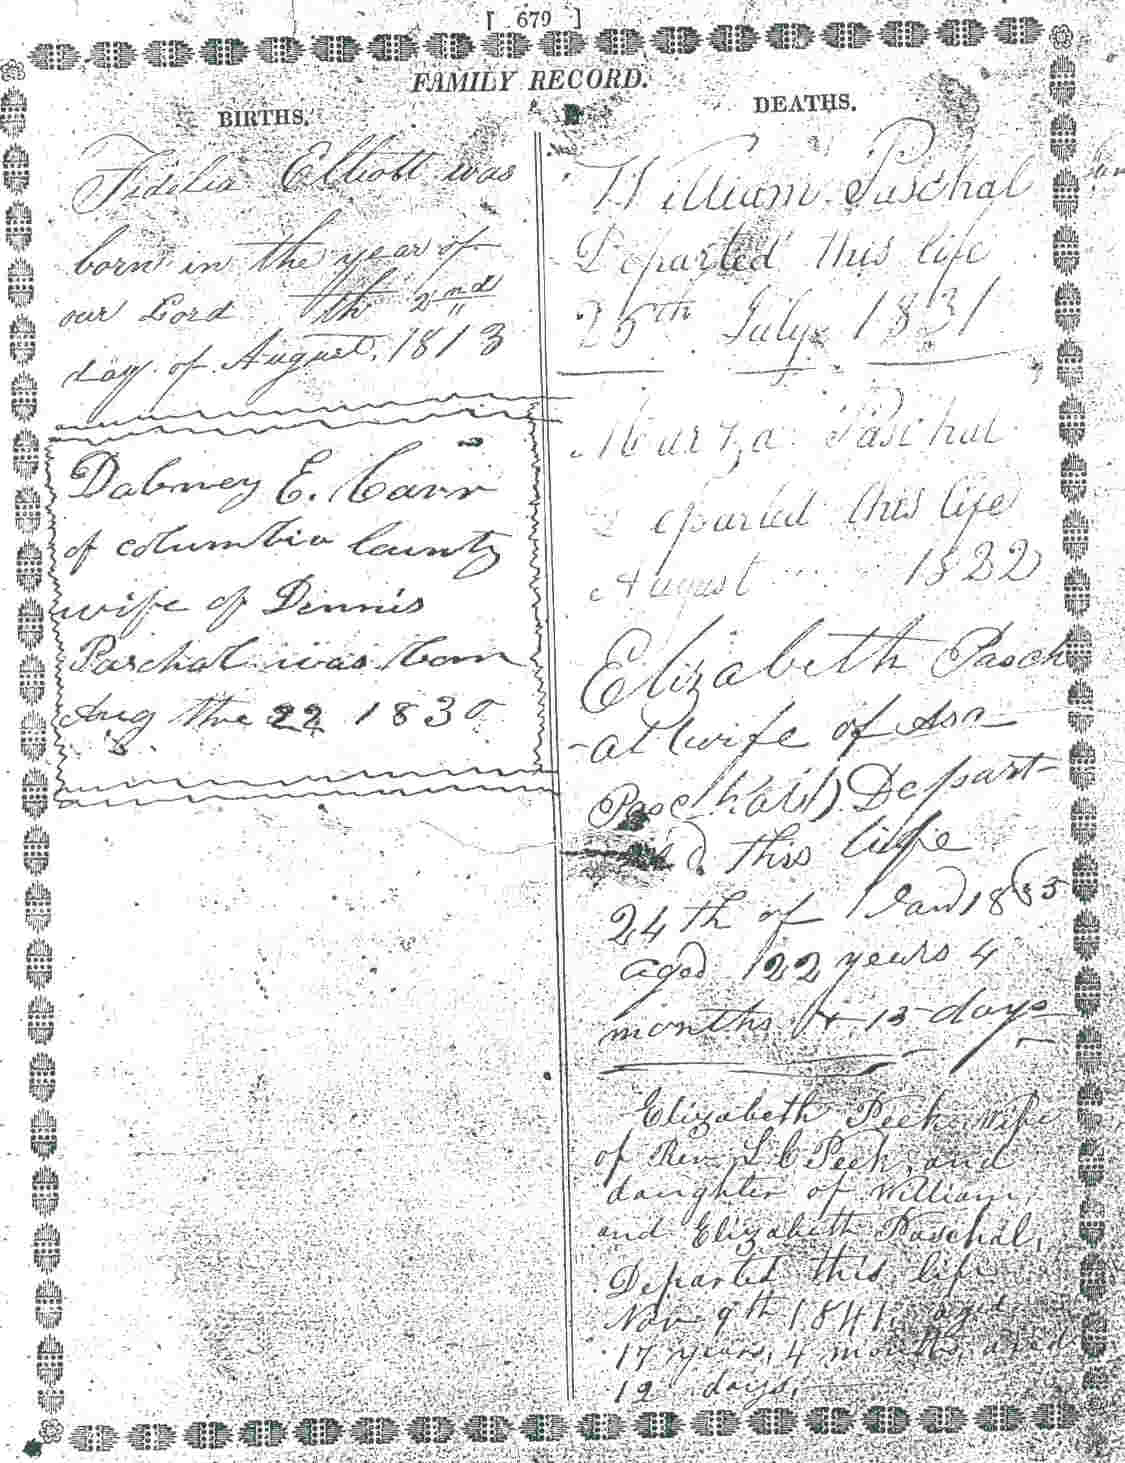 [ 679 ]
FAMILY RECORD.
BIRTHS.
Fidelia Elliott was
born in the year of
our Lord th 2nd
day of August, 1813
Dabney E. Carr
of columbia County
wife of Dennis
Paschal was born
Aug the 22 1830
DEATHS.
William Paschal
Departed this life
25th July 1831
Paschal
Departed this life
August 1822
Elizabeth Pasch
-al wife of Asa
Paschal) Depart-
ed this life
24th of Jan 1885
aged 122 years 4
months & 15 days
Elizabeth Peek Wife
of Rev. L C Peek, and
daughter of William,
and Elizabeth Paschal,
Departed this life
Nov 9th 1841, aged
17 years, 4 months, and
12 days,